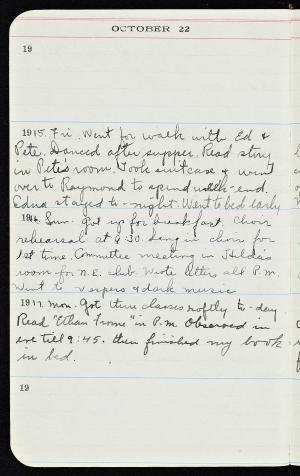 OCTOBER 22
19
1915. Fri. Went for walk with Ed &
Pete. Danced after supper. Read story
in Pete's room. Took suitcase & went
over to Raymond to spend week-end.
Edna stayed to-night. Went to bed early
1916. Sun. Got up for breakfast. Choir
rehearsal at 9:30. Sang in choir for
1st time. Committee meeting in Hilda's
room for N.E. club. Wrote letters all P.M.
Went to vespers & dark music
1917. Mon. Got thru classes to-day
Read "Ethan Frome" in P.M. Observed in
eve till 9:45. then finished my book
in bed.
19